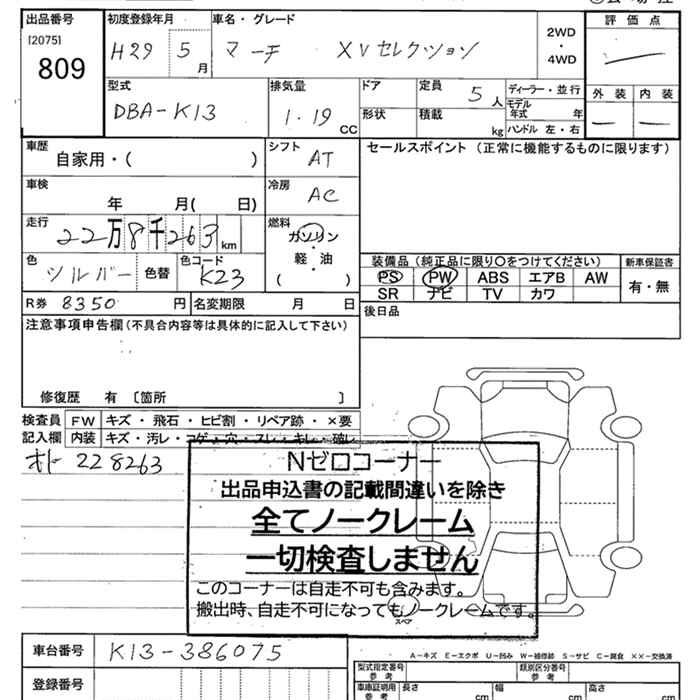 出品番号 初度登録年月 車名・グレード 評価点
[2075]
809
H29 5月 マーチ XVセレクション
2WD
・
4WD
型式 排気量 ドア 定員 5人 ディーラー・並行 外装 内装
DBA-K13 1.19 CC 形状 積載 kg モデル年式 年
ハンドル 左・右
車歴 自家用・( ) シフト AT セールスポイント (正常に機能するものに限ります)
車検 年 月( 日) 冷房 AC
走行 22万8千263km 燃料 ガソリン・軽・油 ( )
色 シルバー 色替 色コード K23
装備品 (純正品に限り○をつけてください) 新車保証書
PS PW ABS エアB AW 有・無
SR ナビ TV カワ
R券 8350円 名変期限 月 日 後日品
注意事項申告欄 (不具合内容等は具体的に記入して下さい)
修復歴 有 〔箇所 〕
検査員 FW キズ・飛石・ヒビ割・リペア跡・×要
記入欄 内装 キズ・汚レ・コゲ・穴・スレ・キレ・破レ
228263
Nゼロコーナー
出品申込書の記載間違いを除き
全てノークレーム
一切検査しません
このコーナーは自走不可も含みます。
搬出時、自走不可になってもノークレームです。
スペア
車台番号 K13-386075
A-キズ E-エクボ U-凹み W-補修跡 S-サビ C-腐食 XX-交換済
登録番号 型式指定番号 参考 類別区分番号 参考
車庫証明用 参考 長さ cm 幅 cm 高さ cm